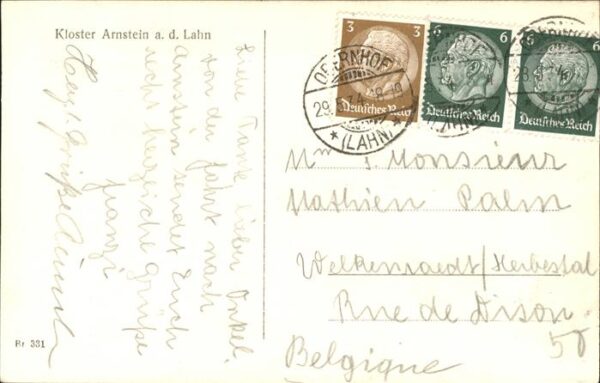 Kloster Arnstein a. d. Lahn
Liebe Tante, lieber Onkel,
von der Fahrt nach
Arnstein sendet Euch
recht herzliche Grüße
Franzi
Herzl. Grüße
3 3
Deutsches Reich
6 6
Deutsches Reich
6 6
Deutsches Reich
OBERNHOF
(LAHN)
Monsieur
Mathieu Palm
Welkenraedt/Herbestal
Rue de Dison
50
Belgique
Br 331